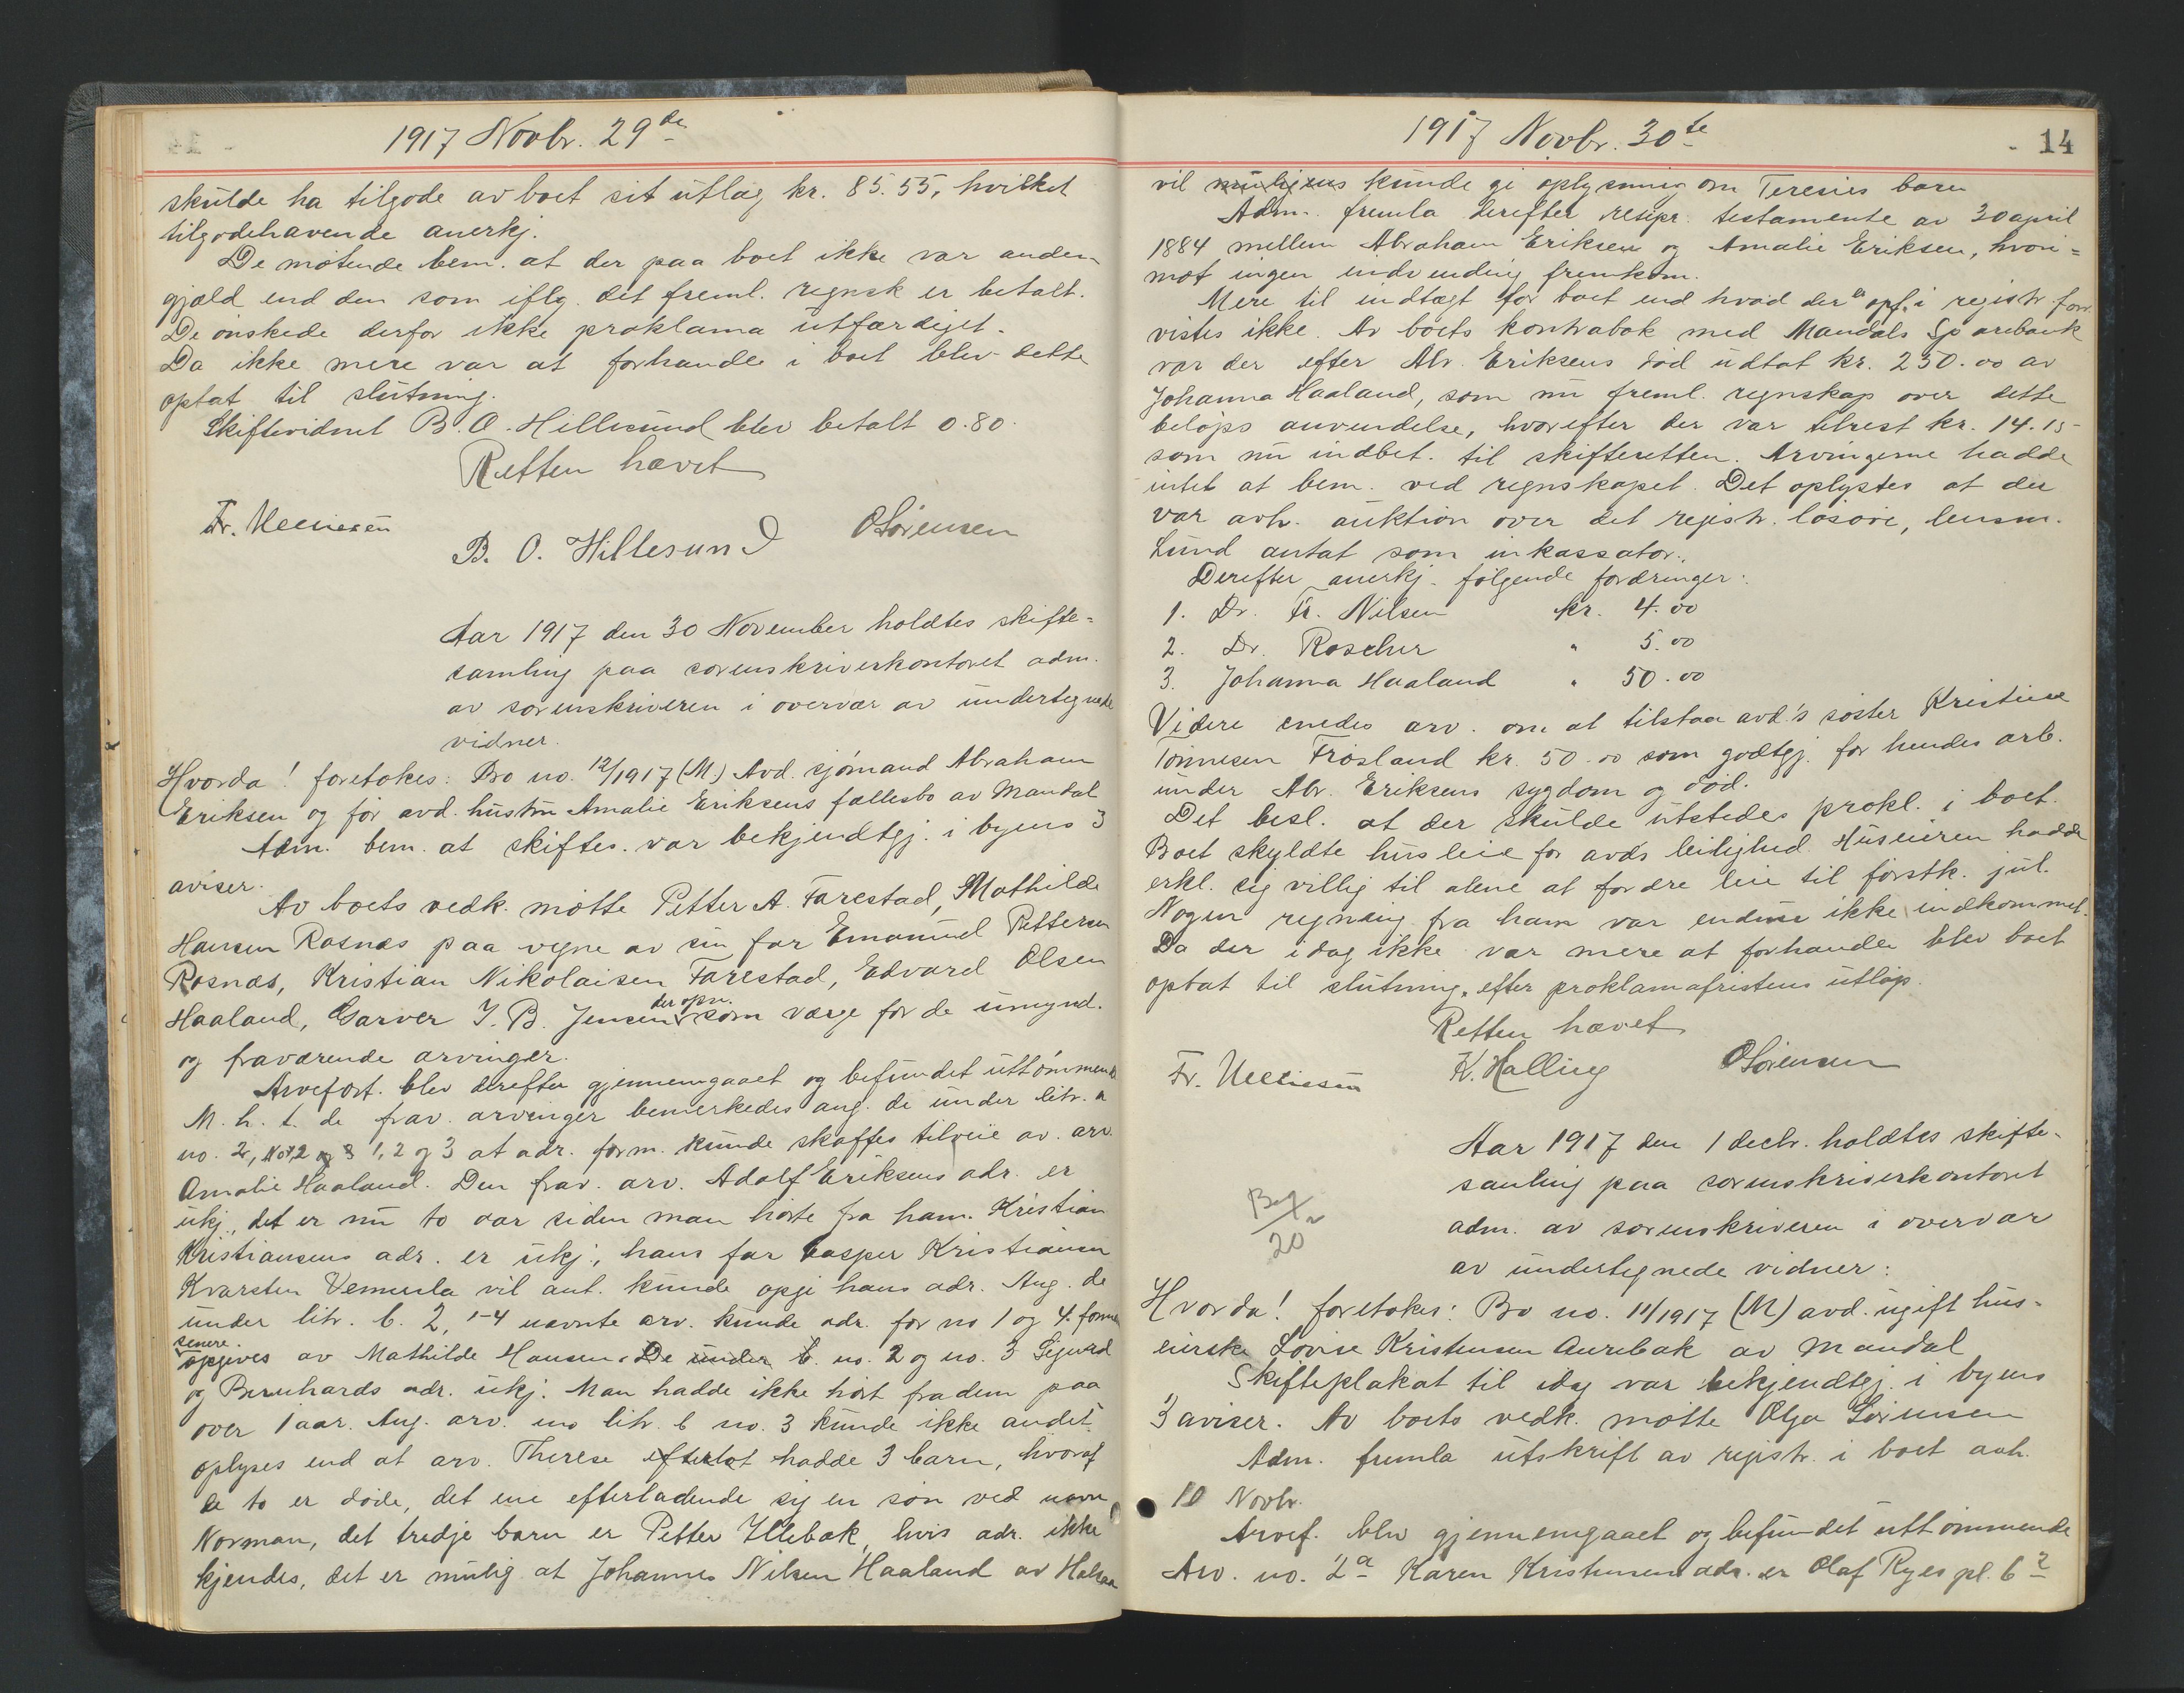 1917 Novbr. 29de
skulde ha tilgode av boet sit utlæg kr. 85.55, hvilket
tilgodehavende anerkj.
De møtende bem. at der paa boet ikke var anden
gjæld end den som iflg. det freml. regnsk er betalt.
De ønskede derfor ikke proklama utfærdiget.
Da ikke mere var at forhandle i boet blev dette
optat til slutning.
Skiftevidnet B. O. Hillesund blev betalt 0.80.
Retten hævet
Fr.
B. O. Hillesund
OSørensen
Aar 1917 den 30 November holdtes skifte-
samling paa sorenskriverkontoret adm.
av sorenskriveren i overvær av undertegnede
vidner.
Hvorda! foretokes: Bo no. 12/1917 (M) Avd. sjømand Abraham
Eriksen og før avd. hustru Amalie Eriksens fællesbo av Mandal
Adm. bem. at skiftes. var bekjendtgj. i byens 3
aviser.
Av boets vedk. møtte Petter A. Farestad, Mathilde
Hansen Rosnæs paa vegne av sin far Emanuel Pettersen
Rosnæs, Kristian Nikolaisen Farestad, Edvard Olsen
Haaland, Garver J. B. Jensen der opn. som værge for de umynd.
og fraværende arvinger.
Arvefort. blev derefter gjennemgaaet og befundet uttømmende
M. h. t. de frav. arvinger bemerkedes ang. de under litr. a
no. 2, 1, 2 og 3 at adr. form. kunde skaffes tilveie av arv.
Amalie Haaland. Den frav. arv. Adolf Eriksens adr. er
ukj., det er nu to aar siden man hørte fra ham. Kristian
Kristiansens adr. er ukj., hans far Casper Kristiansen
Kvarsten Vennesla vil ant. kunde opgi hans adr. Ang. de
under litr. b. 2, 1-4 nævnte arv. kunde adr. for no 1 og 4. form
senere
opgives av Mathilde Hansen. De under b. no. 2 og no. 3 Sigurd
og Bernhards adr. ukj. Man hadde ikke hørt fra dem paa
over 1 aar. Ang. arv. litr. b no. 3 kunde ikke andet
oplyses end at arv. Therese efterlot hadde 3 barn, hvoraf
de to er døde, det ene efterladende sig en søn ved navn
Norman, det tredje barn er Petter Illebæk, hvis adr. ikke
kjendes, det er mulig at Johannes Nilsen Haaland av Halsaa
1917 Novbr. 30te
14
vil muligens kunde gi oplysning om Teresies barn
Adm. fremla derefter resipr. testamente av 30 april
1884 mellem Abraham Eriksen og Amalie Eriksen, hvori-
mot ingen indvending fremkom.
Mere til indtægt for boet end hvad der er opf. i registr. forr.
vistes ikke. Av boets kontrabok med Mandals Sparebank
var der efter Abr. Eriksens død udtat kr. 250.00 av
Johanna Haaland, som nu freml. regnskap over dette
beløps anvendelse, hvorefter der var tilrest kr. 14.15
som nu indbet. til skifteretten. Arvingerne hadde
intet at bem. ved regnskapet. Det oplystes at der
var avh. auktion over det registr. løsøre, lensm.
Lund antat som inkassator.
Derefter anerkj. følgende fordringer:
1. Dr. Fr. Nilsen kr. 4.00
2. Dr. Roscher " 5.00
3. Johanna Haaland " 50.00
Videre enedes arv. om at tilstaa avd.'s søster Kristine
Tønnesen Frøsland kr. 50.00 som godtgj. for hendes arb.
under Abr. Eriksens sygdom og død.
Det besl. at der skulde utstedes prokl. i boet.
Boet skyldte husleie for avd's leilighed. Huseieren hadde
erkl. sig villig til alene at fordre leie til førstk. jul.
Nogen regning fra ham var endnu ikke indkommet.
Da der idag ikke var mere at forhandle blev boet
optat til slutning efter proklamafristens utløp.
Retten hævet
Fr.
K. Halling
OSørensen
Aar 1917 den 1 decbr. holdtes skifte-
samling paa sorenskriverkontoret
adm. av sorenskriveren i overvær
av undertegnede vidner:
20
Hvorda! foretokes: Bo no. 11/1917 (M) avd. ugift hus-
eierske Lovise Kristensen Aurebæk av Mandal
Skifteplakat til idag var bekjendtgj. i byens
3 aviser. Av boets vedk. møtte Olga Sørensen
Adm. fremla utskrift av registr. i boet avh.
10 Novbr.
Arvef. blev gjennemgaaet og befundet uttømmende
Arv. no. 2a Karen Kristensens adr. er Olaf Ryes pl. 6 2